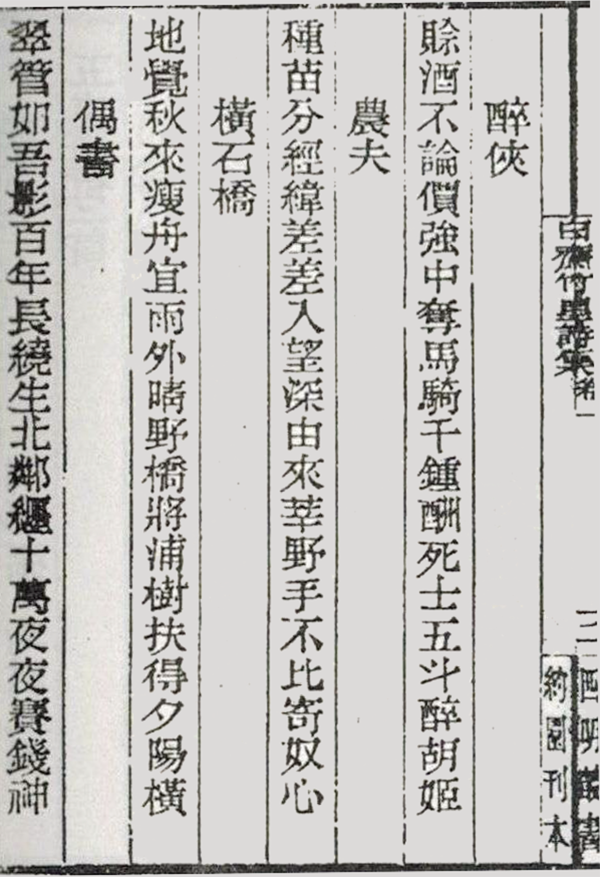 白齋竹里詩集第一
二
四明叢書
約園刊本
醉俠
賒酒不論價強中奪馬騎千鍾酬死士五斗醉胡姬
農夫
種苗分經緯差差入望深由來莘野手不比寄奴心
橫石橋
地覺秋來瘦舟宜雨外晴野橋將浦樹扶得夕陽橫
偶書
翠管如吾影百年長繞生北鄰繦十萬夜夜賽錢神